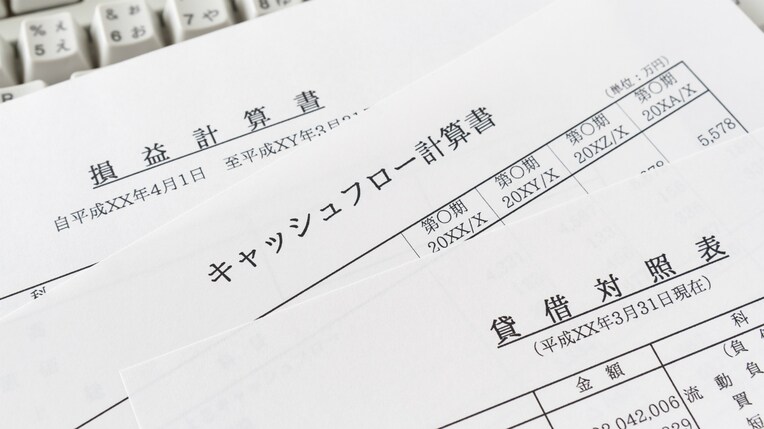 %
5
え
え
&
6
お
ぉ
7
や
8
損益計算書
自平成XX年4月1日 至平成XY年3月31
キャッシュフロー計算書
(単位:万円)
第〇期 第〇期 第〇期 第〇期
20XX/X 20XY/X 20XZ/X 20XA/X
5,578
貸借対照表
(平成XX年3月31日現在)
金額 科
(負
2,042,006 流動負
買
短